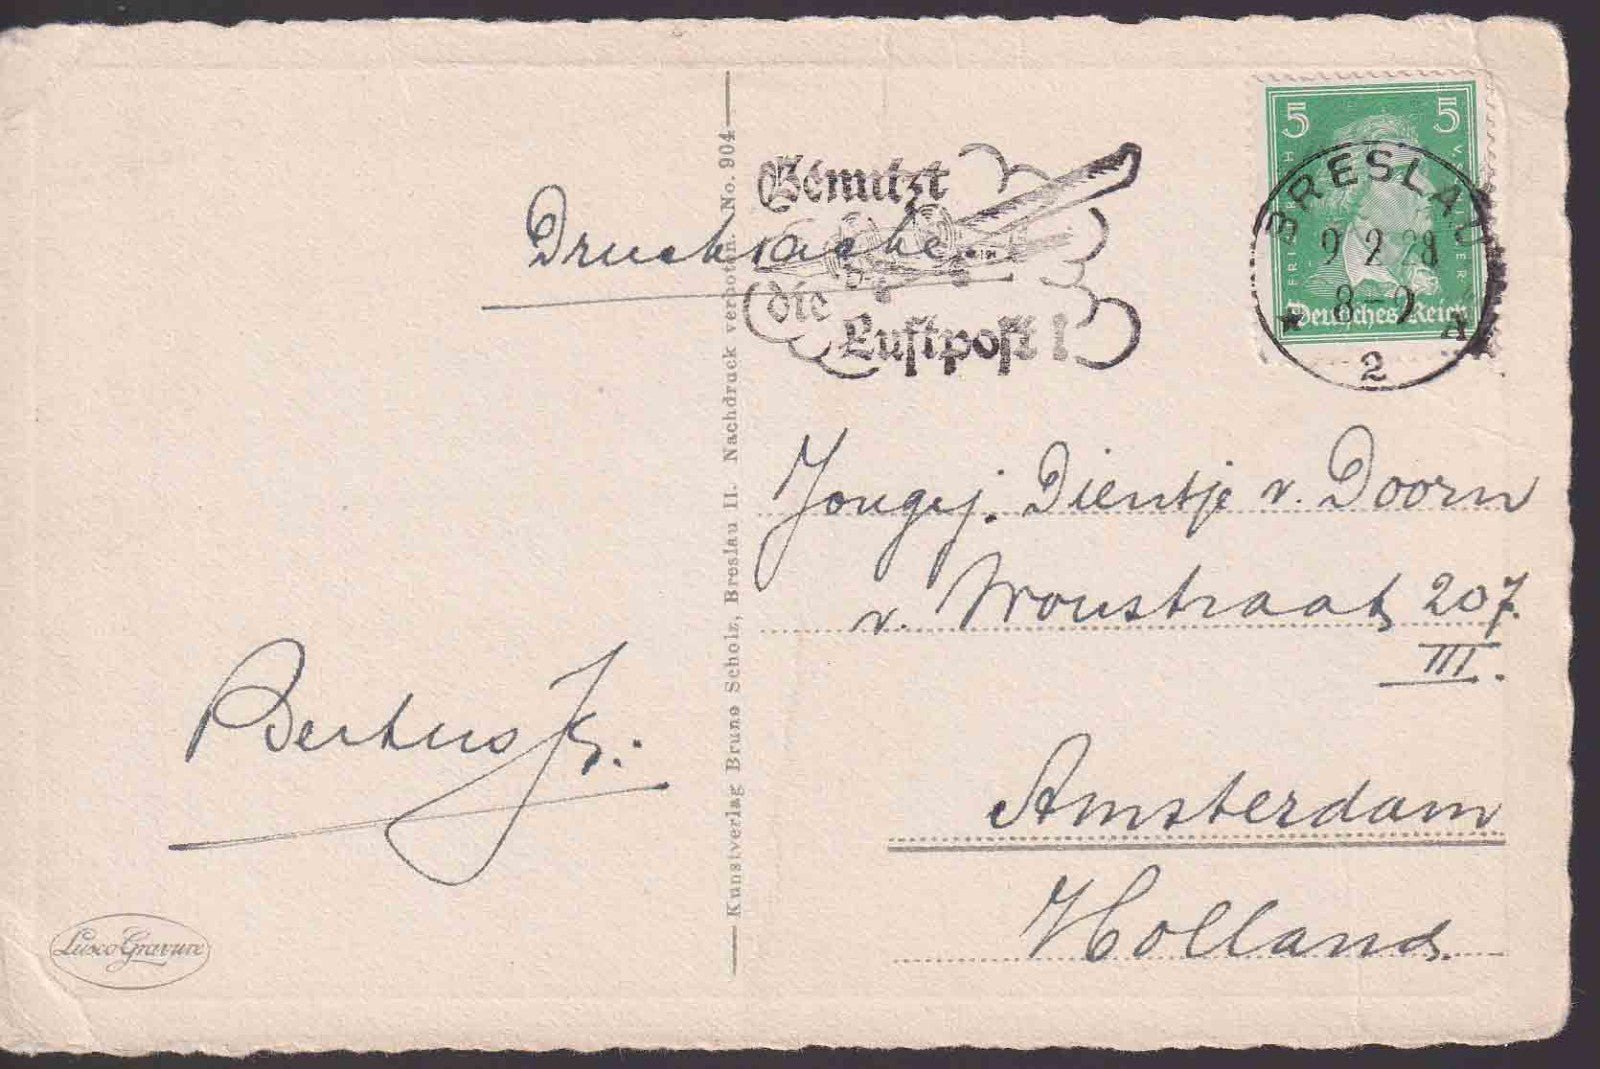 5 5
FRIEDRICH V. SCHILLER
Deutsches Reich
BRESLAU
9 2 28
8-9
* 2 A
Benutzt
die
Luftpost!
Drucksache.
Jongej. Dientje v. Doorn
v. Woustraat 207.
III.
Amsterdam
Holland.
Bertus
Kunstverlag Bruno Scholz, Breslau II. Nachdruck verboten. No. 904
Lusco-Gravure